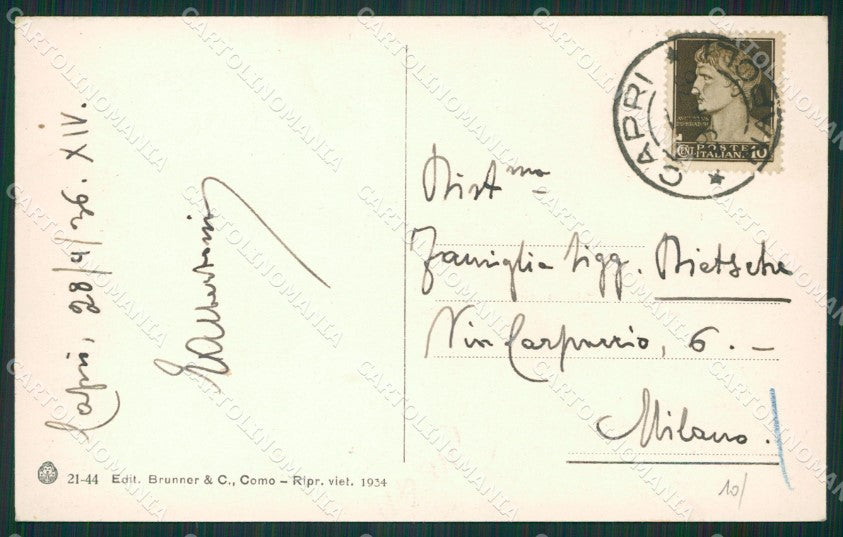 Capri, 28/4/36. XIV.
EAlbertini
21-44 Edit. Brunner & C., Como – Ripr. viet. 1934
CAPRI
NAPOLI
POSTE
ITALIANE
CENT. 10
Dist.ma
Famiglia Sigg. Nietsche
Via Carpaccio, 6. –
Milano.
10/
CARTOLINOMANIA